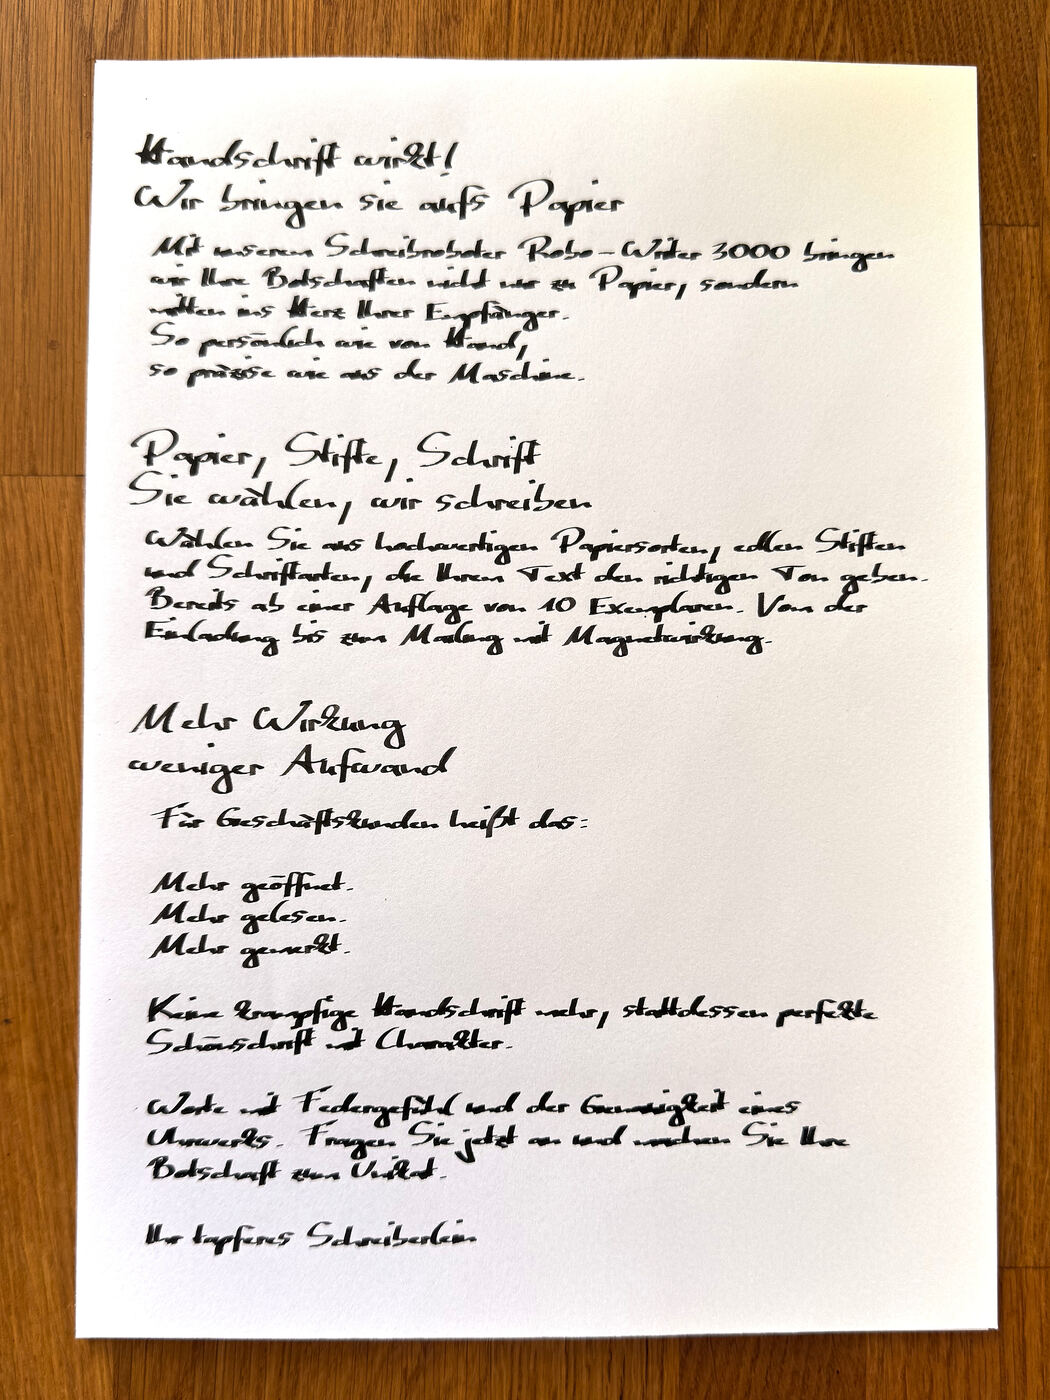 Handschrift wirkt!
Wir bringen sie aufs Papier
Mit unserem Schreibroboter Robo-Writer 3000 bringen
wir Ihre Botschaften nicht nur zu Papier, sondern
mitten ins Herz Ihrer Empfänger.
So persönlich wie von Hand,
so präzise wie aus der Maschine.
Papier, Stifte, Schrift
Sie wählen, wir schreiben
Wählen Sie aus hochwertigen Papiersorten, edlen Stiften
und Schriftarten, die Ihrem Text den richtigen Ton geben.
Bereits ab einer Auflage von 10 Exemplaren. Von der
Einladung bis zum Mailing mit Magnetwirkung.
Mehr Wirkung
weniger Aufwand
Für Geschäftskunden heißt das:
Mehr geöffnet.
Mehr gelesen.
Mehr gemerkt.
Keine krampfige Handschrift mehr, stattdessen perfekte
Schönschrift mit Charakter.
Worte mit Federgefühl und der Genauigkeit eines
Uhrwerks. Fragen Sie jetzt an und machen Sie Ihre
Botschaft zum Unikat.
Ihr tapferes Schreiberlein